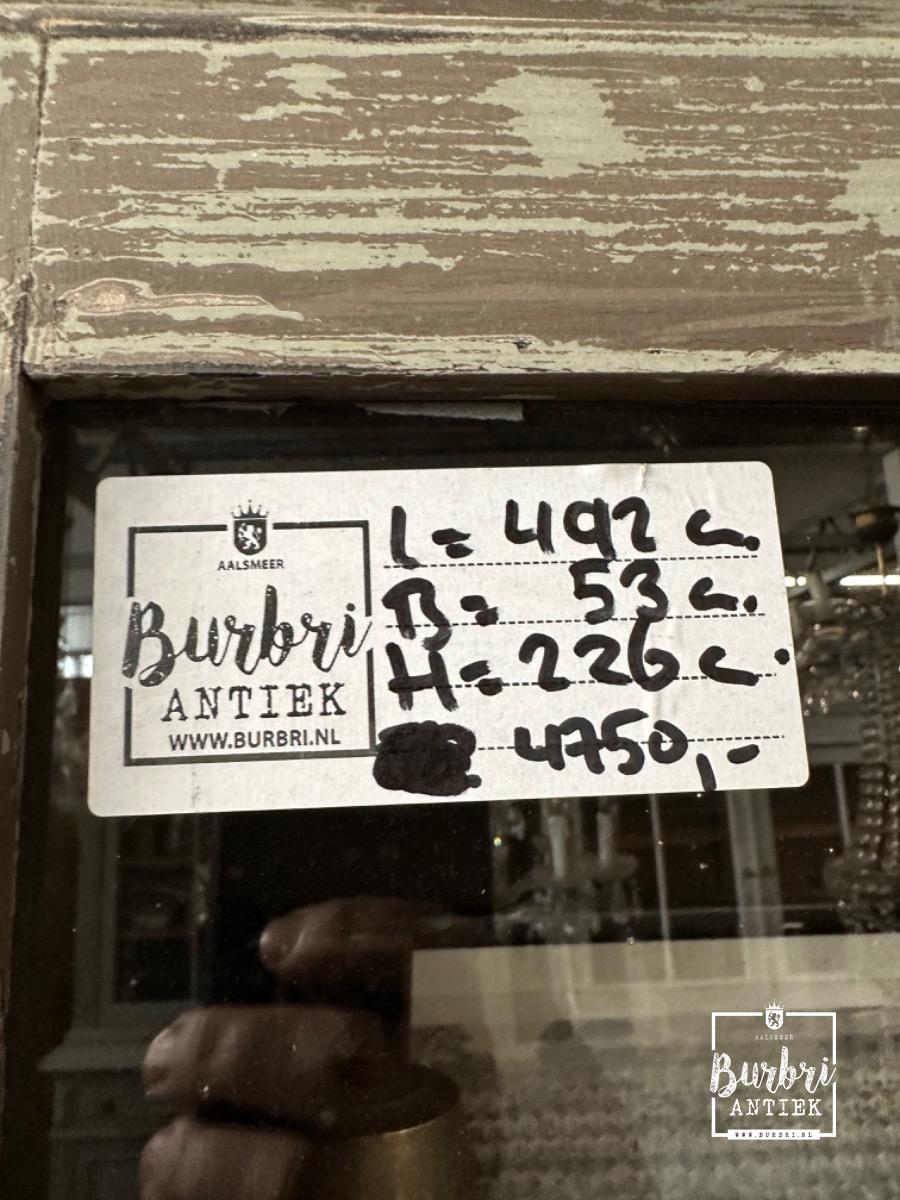 AALSMEER
Burbri
ANTIEK
WWW.BURBRI.NL
L= 492 c.
B= 53 c.
H= 226 c.
4750,-
AALSMEER
Burbri
ANTIEK
WWW.BURBRI.NL